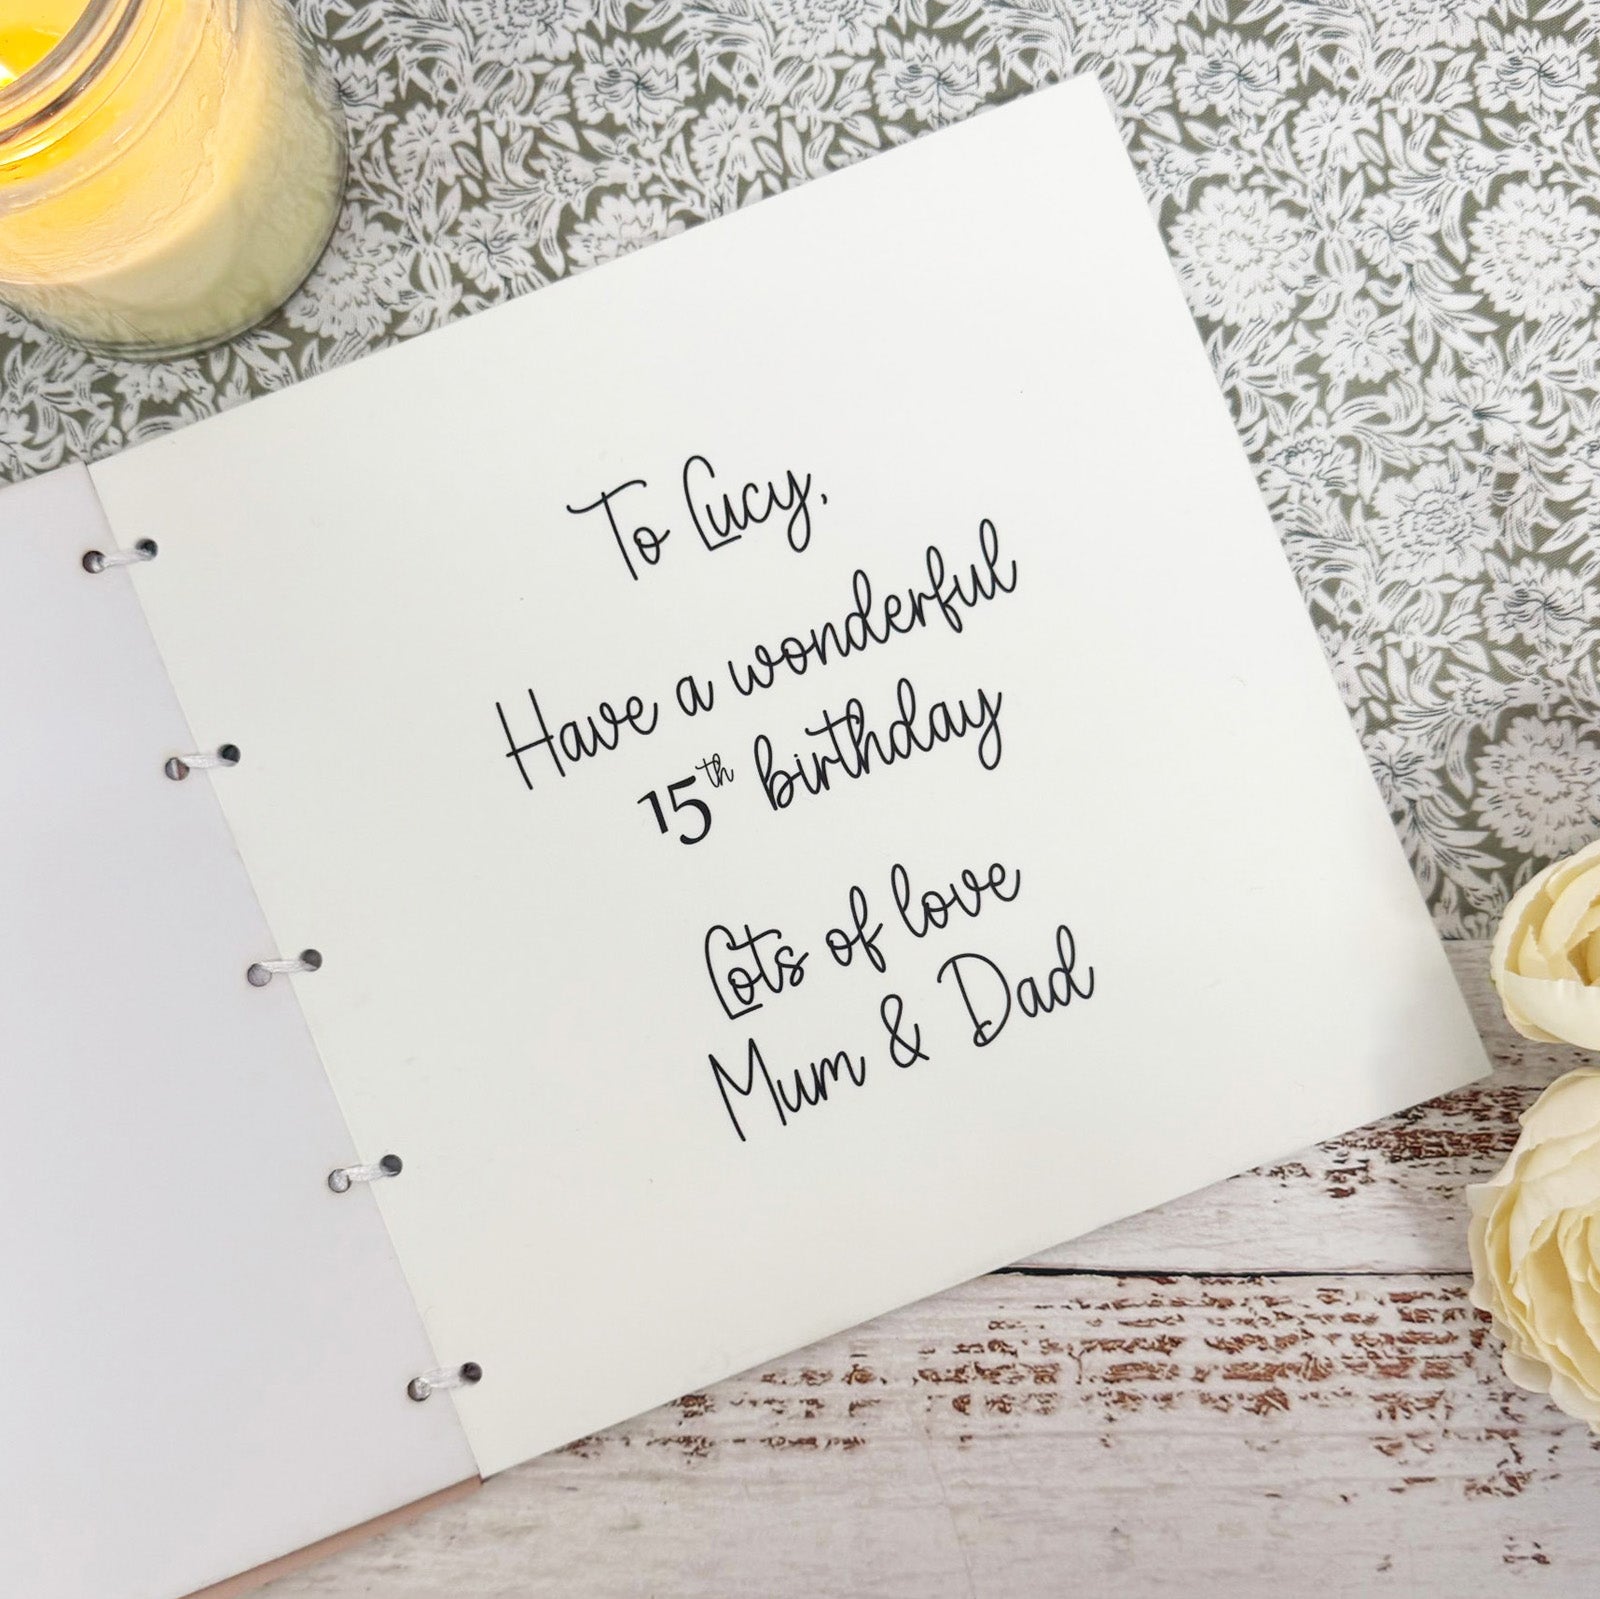 To Lucy,
Have a wonderful
15th birthday
Lots of love
Mum & Dad